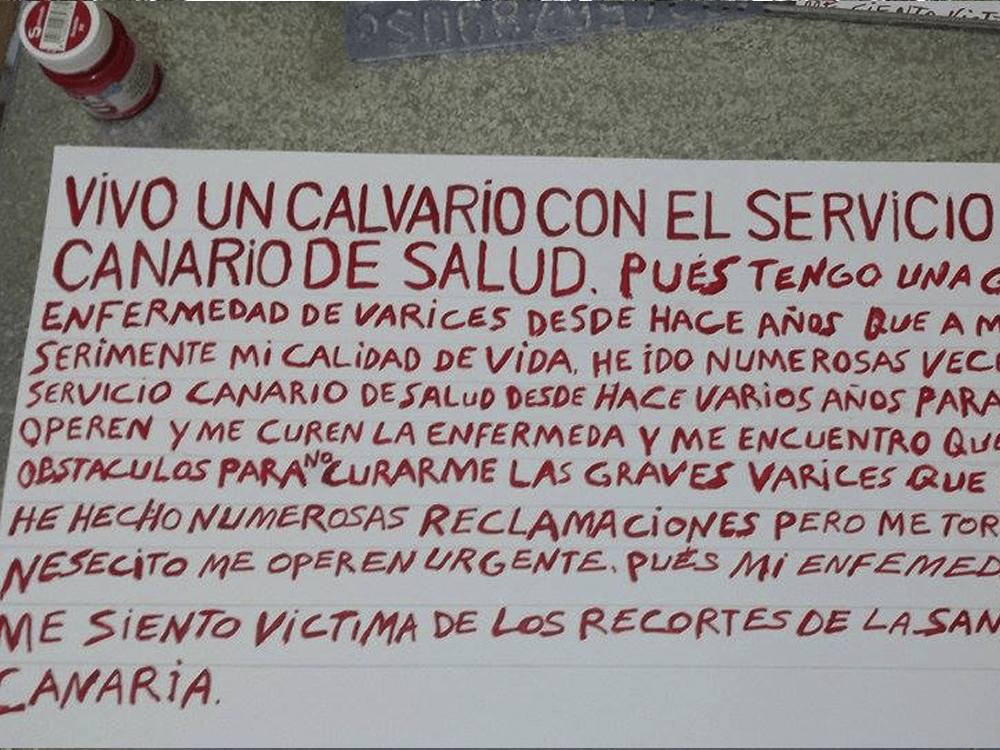 VIVO UN CALVARIO CON EL SERVICIO
CANARIO DE SALUD. PUÉS TENGO UNA
ENFERMEDAD DE VARICES DESDE HACE AÑOS QUE A
SERIMENTE MI CALIDAD DE VIDA. HE IDO NUMEROSAS
SERVICIO CANARIO DE SALUD DESDE HACE VARIOS AÑOS PARA
OPEREN Y ME CUREN LA ENFERMEDA Y ME ENCUENTRO
OBSTACULOS PARA NO CURARME LAS GRAVES VARICES QUE
HE HECHO NUMEROSAS RECLAMACIONES PERO ME
NESECITO ME OPEREN URGENTE. PUÉS MI
ME SIENTO VICTIMA DE LOS RECORTES DE LA
CANARIA.